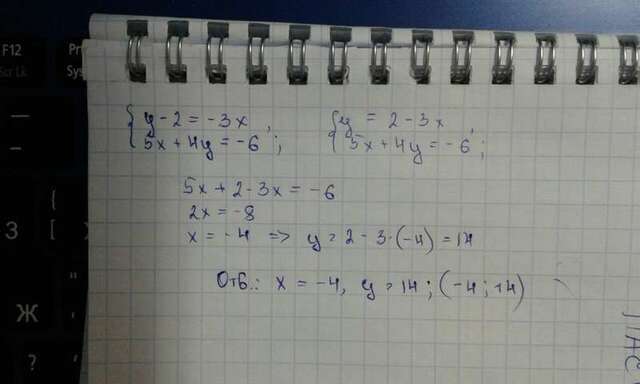 F12
Scr Lk
Pr
Sys
{y - 2 = -3x, {y = 2 - 3x,
5x + 4y = -6; 5x + 4y = -6;
5x + 2 - 3x = -6
2x = -8
x = -4 => y = 2 - 3·(-4) = 14
Отв.: x = -4, y = 14; (-4; 14)
З
[
Х
Ж
"
?